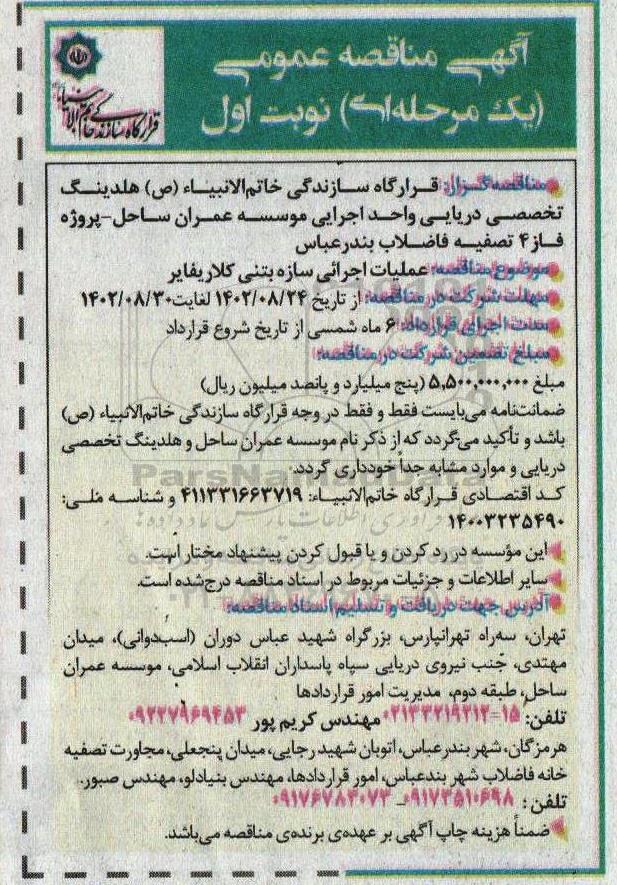 آگهی مناقصه عمومی
(یک مرحله‌ای) نوبت اول
قرارگاه سازندگی خاتم الانبیاء
مناقصه‌گزار: قرارگاه سازندگی خاتم‌الانبیاء (ص) هلدینگ
تخصصی دریایی واحد اجرایی موسسه عمران ساحل-پروژه
فاز۴ تصفیه فاضلاب بندرعباس
موضوع مناقصه: عملیات اجرائی سازه بتنی کلاریفایر
مهلت شرکت در مناقصه: از تاریخ ۱۴۰۲/۰۸/۲۴ لغایت ۱۴۰۲/۰۸/۳۰
مدت اجرای قرارداد: ۶ ماه شمسی از تاریخ شروع قرارداد
مبلغ تضمین شرکت در مناقصه:
مبلغ ۵,۵۰۰,۰۰۰,۰۰۰ (پنج میلیارد و پانصد میلیون ریال)
ضمانت‌نامه می‌بایست فقط و فقط در وجه قرارگاه سازندگی خاتم‌الانبیاء (ص)
باشد و تأکید می‌گردد که از ذکر نام موسسه عمران ساحل و هلدینگ تخصصی
دریایی و موارد مشابه جداً خودداری گردد.
کد اقتصادی قرارگاه خاتم‌الانبیاء: ۴۱۱۳۳۱۶۶۳۷۱۹ و شناسه ملی:
۱۴۰۰۳۲۳۵۴۹۰
این مؤسسه در رد کردن و یا قبول کردن پیشنهاد مختار است.
سایر اطلاعات و جزئیات مربوط در اسناد مناقصه درج‌شده است.
آدرس جهت دریافت و تسلیم اسناد مناقصه:
تهران، سه‌راه تهرانپارس، بزرگراه شهید عباس دوران (اسب‌دوانی)، میدان
مهتدی، جنب نیروی دریایی سپاه پاسداران انقلاب اسلامی، موسسه عمران
ساحل، طبقه دوم، مدیریت امور قراردادها
تلفن: ۱۵-۰۲۱۳۳۲۱۹۲۱۲ مهندس کریم پور ۰۹۲۲۷۹۶۹۴۵۳
هرمزگان، شهر بندرعباس، اتوبان شهید رجایی، میدان پنجعلی، مجاورت تصفیه
خانه فاضلاب شهر بندعباس، امور قراردادها، مهندس بنیادلو، مهندس صبور.
تلفن: ۰۹۱۷۳۵۱۰۶۹۸-۰۹۱۷۶۷۸۴۰۷۳
ضمناً هزینه چاپ آگهی بر عهده‌ی برنده‌ی مناقصه می‌باشد.
ParsNamadData